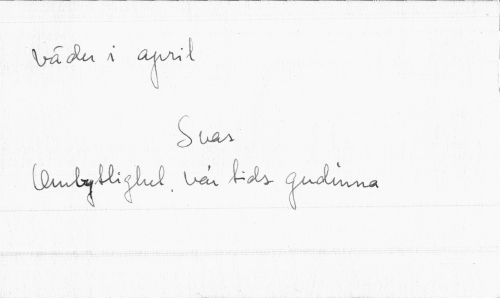 väder i april
Svas
Ombytlighet, vår tids gudinna